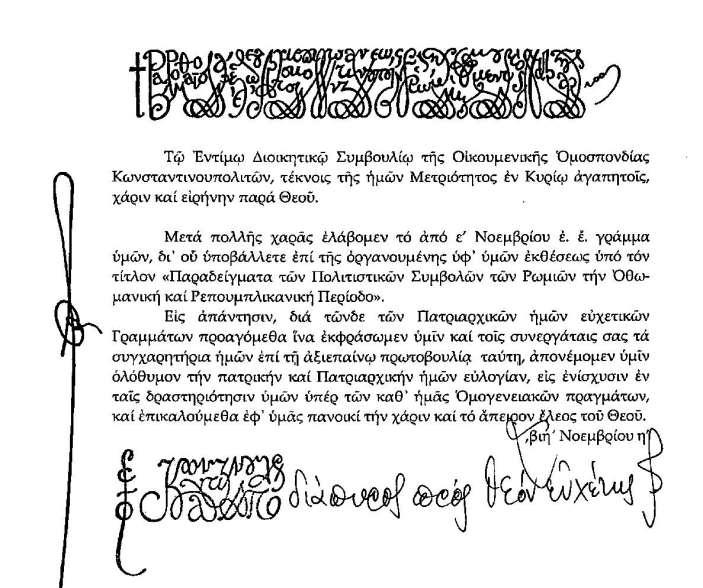 Τῷ Ἐντίμῳ Διοικητικῷ Συμβουλίῳ τῆς Οἰκουμενικῆς Ὁμοσπονδίας
Κωνσταντινουπολιτῶν, τέκνοις τῆς ἡμῶν Μετριότητος ἐν Κυρίῳ ἀγαπητοῖς,
χάριν καί εἰρήνην παρά Θεοῦ.
Μετά πολλῆς χαρᾶς ἐλάβομεν τό ἀπό ε’ Νοεμβρίου ἐ. ἔ. γράμμα
ὑμῶν, δι’ οὗ ὑποβάλλετε ἐπί τῆς ὀργανουμένης ὑφ’ ὑμῶν ἐκθέσεως ὑπό τόν
τίτλον «Παραδείγματα τῶν Πολιτιστικῶν Συμβολῶν τῶν Ρωμιῶν τήν Ὀθω-
μανική καί Ρεπουμπλικανική Περίοδο».
Εἰς ἀπάντησιν, διά τῶνδε τῶν Πατριαρχικῶν ἡμῶν εὐχετικῶν
Γραμμάτων προαγόμεθα ἵνα ἐκφράσωμεν ὑμῖν καί τοῖς συνεργάταις σας τά
συγχαρητήρια ἡμῶν ἐπί τῇ ἀξιεπαίνῳ πρωτοβουλίᾳ ταύτῃ, ἀπονέμομεν ὑμῖν
ὁλόθυμον τήν πατρικήν καί Πατριαρχικήν ἡμῶν εὐλογίαν, εἰς ἐνίσχυσιν ἐν
ταῖς δραστηριότησιν ὑμῶν ὑπέρ τῶν καθ’ ἡμᾶς Ὁμογενειακῶν πραγμάτων,
καί ἐπικαλούμεθα ἐφ’ ὑμᾶς πανοικί τήν χάριν καί τό ἄπειρον ἔλεος τοῦ Θεοῦ.
͵βιη’ Νοεμβρίου η’
διάπυρος πρός Θεόν εὐχέτης